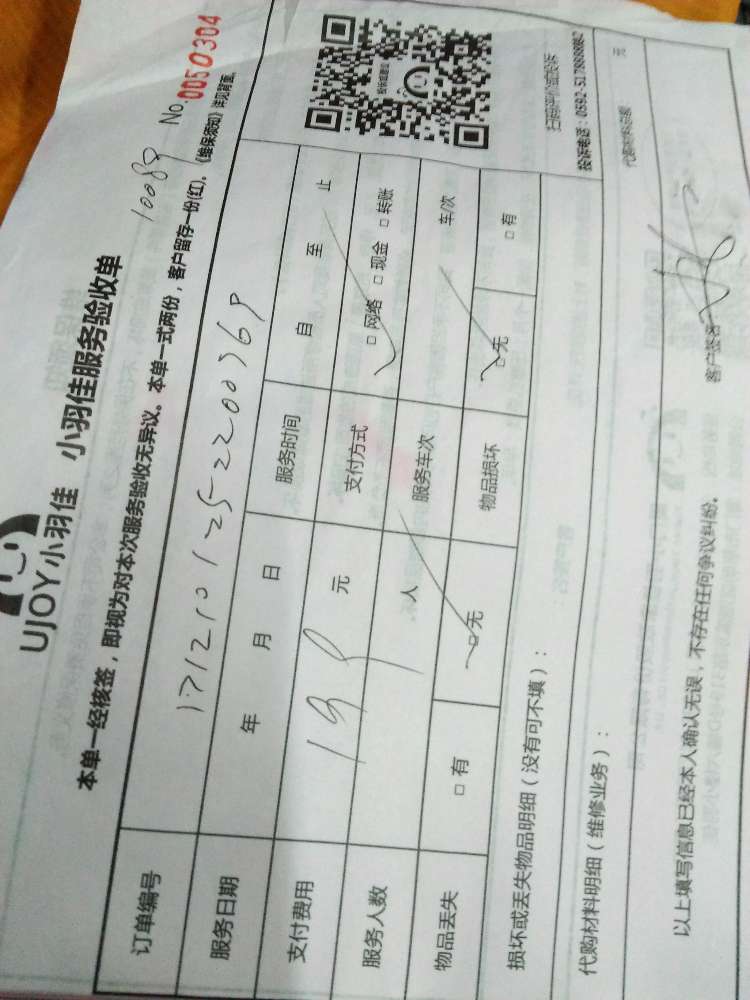 UJOY小羽佳 小羽佳服务验收单
10089 No.0050304
本单一经核签，即视为对本次服务验收无异议。本单一式两份，客户留存一份(红)。《维保须知》详见背面。
订单编号 1712101252200369
服务日期 年 月 日 服务时间 自 至 止
支付费用 199 元 支付方式 □网络 □现金 □转账
服务人数 人 服务车次 车/次
物品丢失 □有 □无 物品损坏 □无 □有
损坏或丢失物品明细（没有可不填）：
代购材料明细（维修业务）：
代购材料总额 元
扫码评价或投诉
投诉电话：0592-5178888转2
以上填写信息已经本人确认无误，不存在任何争议纠纷。 客户签名